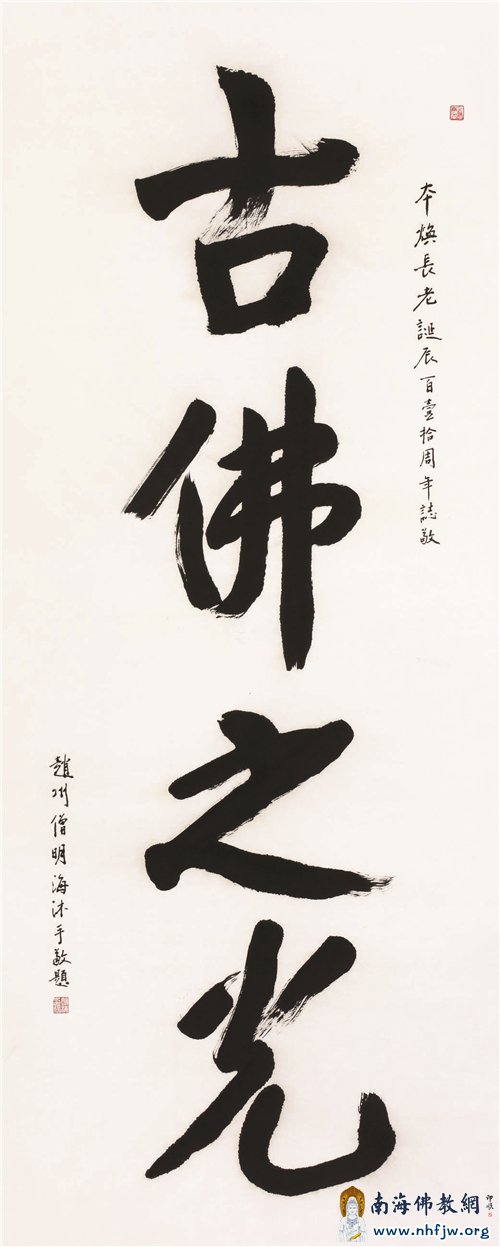 本煥長老誕辰百壹拾周年誌敬
古佛之光
趙州僧明海沐手敬題
南海佛教網
www.nhfjw.org